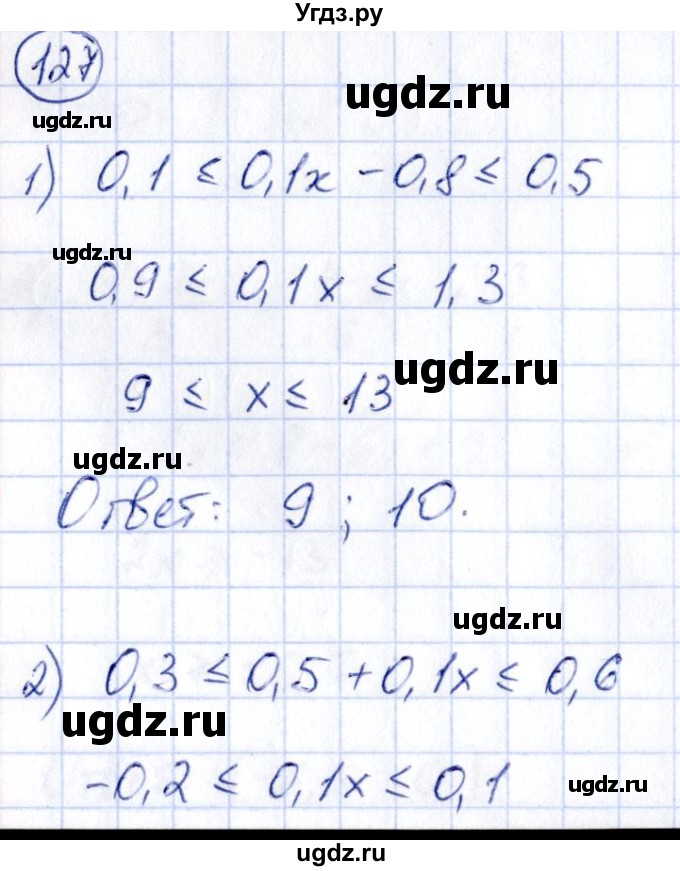 Угдз.ру
127
ugdz.ru
ugdz.ru
1) 0,1 ≤ 0,1x - 0,8 ≤ 0,5
ugdz.ru
0,9 ≤ 0,1x ≤ 1,3
ugdz.ru
9 ≤ x ≤ 13
ugdz.ru
Ответ: 9; 10.
ugdz.ru
2) 0,3 ≤ 0,5 + 0,1x ≤ 0,6
ugdz.ru
-0,2 ≤ 0,1x ≤ 0,1
ugdz.ru
ugdz.ru